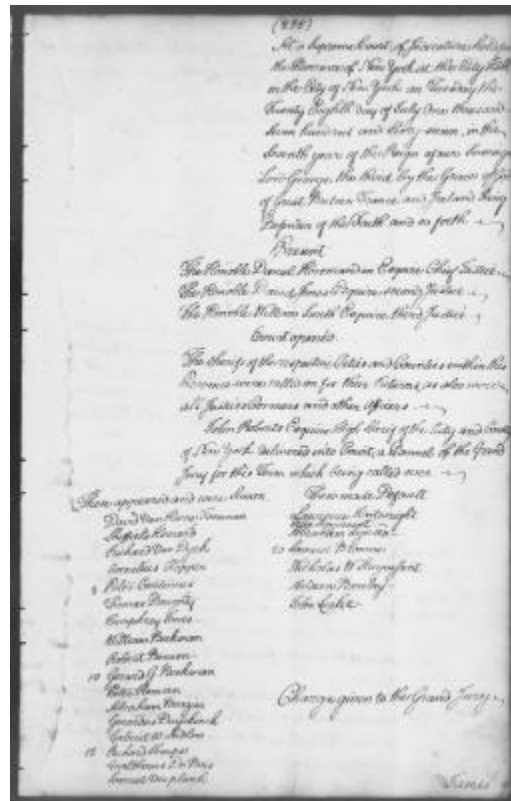 (898)
At a Supreme Court of Judicature held for
the Province of New York at the City Hall
in the City of New York on Tuesday the
Twenty Eighth day of July One thousand
Seven hundred and Sixty seven, in the
Seventh year of the Reign of our Sovereign
Lord George the third by the Grace of God
of Great Britain France and Ireland King
Defender of the Faith and so forth
Present
The Honorble Daniel Horsmanden Esquire Chief Justice
The Honorble David Jones Esquire second Justice
The Honorble William Smith Esquire third Justice
Court opened
The sheriffs of the respective Cities and Counties within this
Province were called on for their Returns, as also were
all Justices Coroners and other Officers
John Roberts Esquire High Sherif of the City and County
of New York delivered into Court, a Pannel of the Grand
Jury for this Term which being called over
These appeared and were Sworn
These made Default
David Van Horne Foreman
Sheffield Howard
Richard Van Dyck
Cornelius
5 Peter
Thomas Doughty
Humphrey Jones
William Beekman
Robert Benson
10 Gerard G Beekman
Peter Remsen
Abraham
Gerardus Duyckinck
Gabriel W Ludlow
15 Richard Sharpe
De Peis
Samuel Verplanck
Lawrence Kortright
Abraham
20 Samuel
Nicholas W Stuyvesant
John Leake
Charge given to the Grand Jury
James